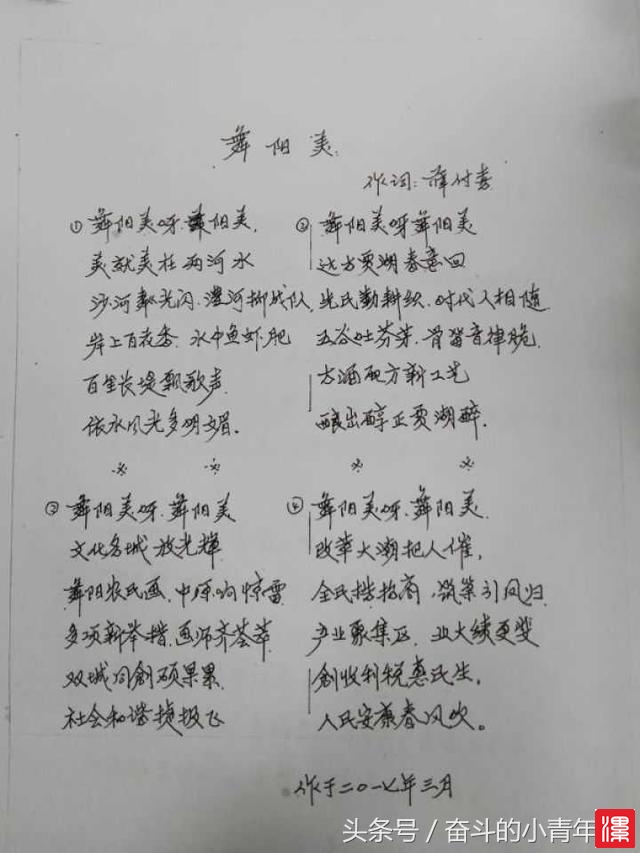 舞阳美
作词:薛付喜
① 舞阳美呀.舞阳美,
美就美在两河水
沙河粼光闪.澧河柳成队,
岸上百花香.水中鱼虾肥
百里长堤飘歌声
依水风光多明媚.
② 舞阳美呀.舞阳美
文化名城放光辉
舞阳农民画.中原响惊雷
多项新举措.画师齐荟萃
双城同创硕果累
社会和谐捷报飞
③ 舞阳美呀舞阳美
远古贾湖春意回
先民勤耕织.时代人相随
五谷吐芬芳.骨笛音律脆.
古酒配方新工艺
酿出醇正贾湖醉.
④ 舞阳美呀.舞阳美.
改革大潮把人催,
全民撸招商.筑巢引凤归.
产业聚集区.业大绩更斐
创收利税惠民生,
人民安康春风吹。
作于二〇一七年三月
头条号/奋斗的小青年
漯